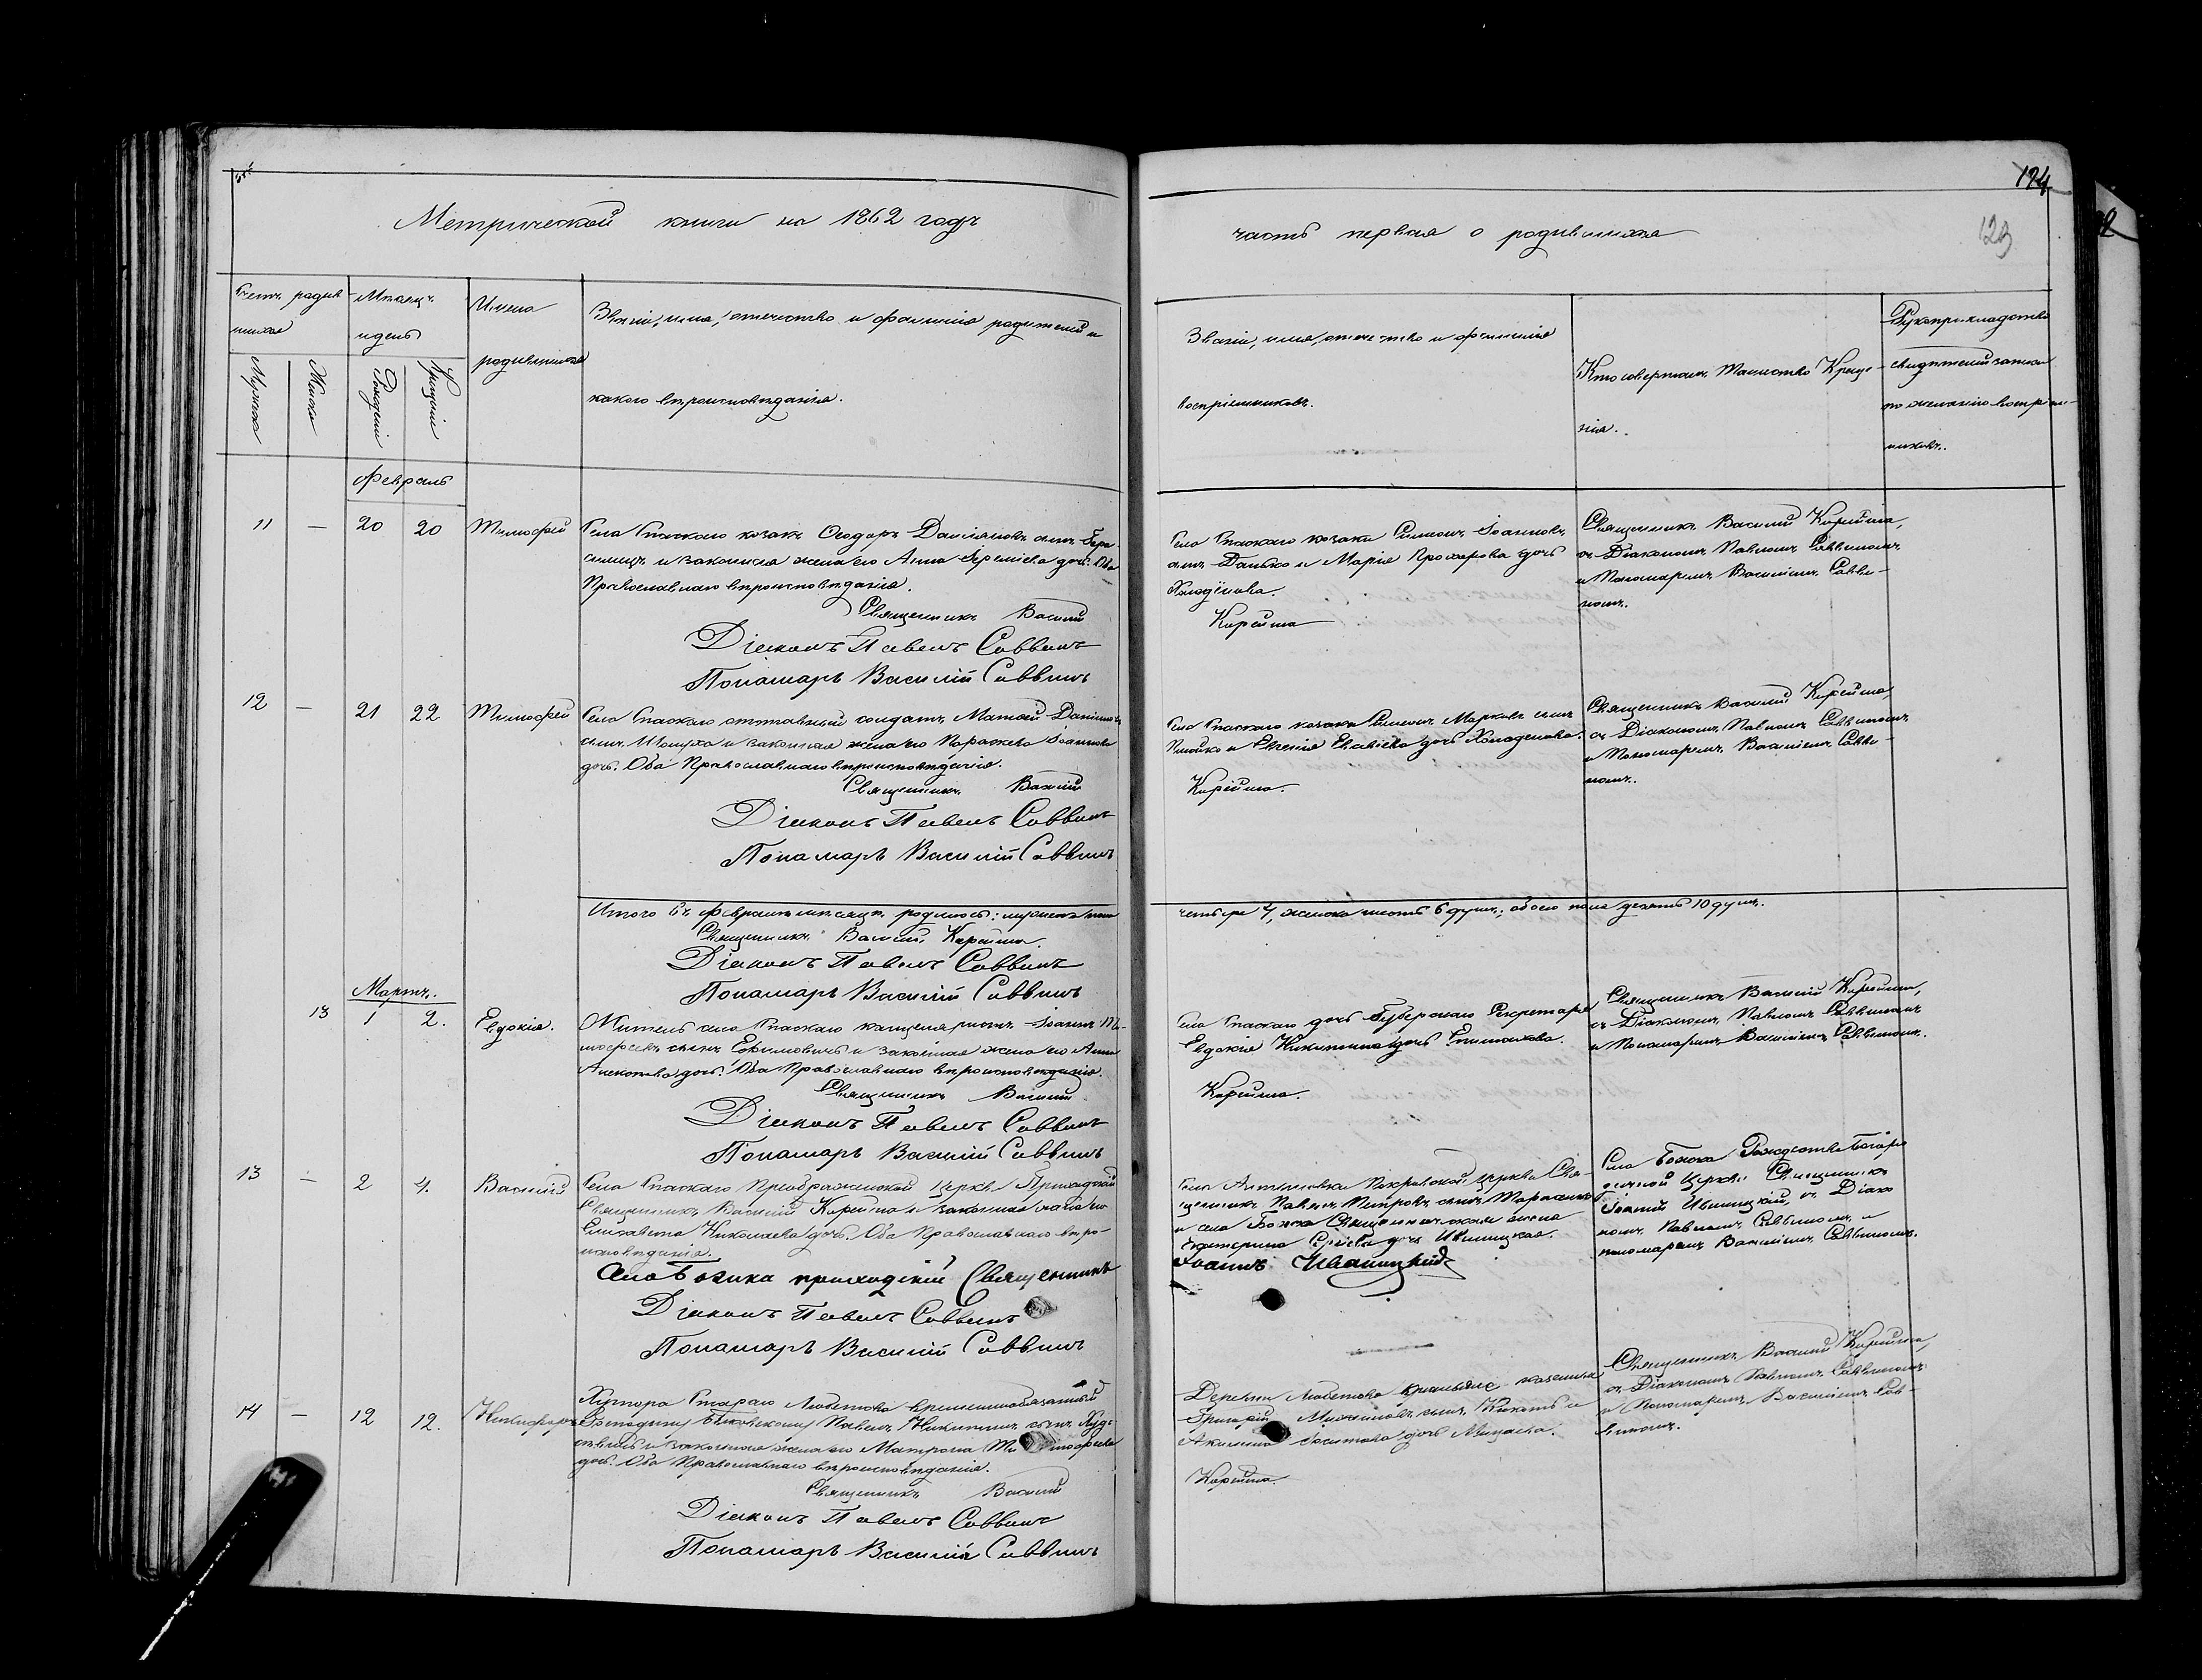 124
123
Метрической книги на 1862 годъ
часть первая о родившихся
Счетъ родив-
шихся
Мужеска
Женска
Мѣсяцъ
и день
Рожденій
Крещеній
Имена
родившихся
Званіе, имя, отечество и фамилія родителей и
какого вѣроисповѣданія.
Званіе, имя, отечество и фамилія
воспріемниковъ.
Кто совершалъ Таинство Креще-
нія.
Рукоприкладство
свидѣтелей записи
по желанію воспріем-
никовъ.
Февраль
11 — 20 20 Тимофей
Села Спаскаго козакъ Ѳеодоръ Даміановъ сынъ Гера-
симецъ и законная жена его Анна Іереміева дочь. Оба
Православнаго вѣроисповѣданія.
Священникъ Василій
Діаконъ Павелъ Саввинъ
Понамарь Василій Саввинъ
Села Спаскаго козакъ Симеонъ Іоанновъ
сынъ Данько и Марія Прохорова дочь
Кореиша
Священникъ Василій Кореиша,
съ Діакономъ Павломъ Саввиномъ
и Пономаремъ Василіемъ Савви-
номъ.
12 — 21 22 Тимофей
Села Спаскаго отставный солдатъ Матөей Даніиловъ
сынъ и законная жена его Параскева Іоаннова
дочь. Оба Православнаго вѣроисповѣданія.
Священникъ Василій
Діаконъ Павелъ Саввинъ
Понамарь Василій Саввинъ
Села Спаскаго козакъ Симеонъ Марковъ сынъ
и Евгенія дочь
Кореиша.
Священникъ Василій Кореиша,
съ Діакономъ Павломъ Саввиномъ
и Пономаремъ Василіемъ Савви-
номъ.
Итого въ февралѣ мѣсяцѣ родилось: мужеска пола
четыре 4, женска шесть 6 душъ; обоего пола десять 10 душъ.
Священникъ Василій Кореиша.
Діаконъ Павелъ Саввинъ
Понамарь Василій Саввинъ
Мартъ.
13 1 2. Евдокія.
Житель села Спаскаго канцеляристъ Іоаннъ Ти-
мофеевъ сынъ Ефимовичъ и законная жена его Анна
Алексѣева дочь. Оба Православнаго вѣроисповѣданія.
Священникъ Василій
Діаконъ Павелъ Саввинъ
Понамарь Василій Саввинъ
Села Спаскаго дочь Губернскаго Секретаря
Евдокія Никитина дочь
Кореиша.
Священникъ Василій Кореиша,
съ Діакономъ Павломъ Саввиномъ
и Пономаремъ Василіемъ Саввиномъ.
13 — 2 4. Василій
Села Спаскаго Преображенской церкви Приходскій
Священникъ Василій Кореиша и законная жена его
Елисавета Николаева дочь. Оба Православнаго вѣро-
исповѣданія.
Села Божка приходскій Священникъ
Діаконъ Павелъ Саввинъ
Понамарь Василій Саввинъ
Села Покровской церкви Свя-
щенникъ Павелъ Петровъ сынъ
и села Божка Священническая жена
Екатерина дочь Иваницкая.
Іоаннъ Иваницкій
Села Божка Рождество Богоро-
дичной церкви Священникъ
Іоаннъ Иваницкій, съ Діако-
номъ Павломъ Саввиномъ и
пономаремъ Василіемъ Саввиномъ.
14 — 12 12. Никифоръ
Хутора Стараго временнообязанный
Павелъ Никитинъ сынъ
и законная жена его Матрона Тимофеева
дочь. Оба Православнаго вѣроисповѣданія.
Священникъ Василій
Діаконъ Павелъ Саввинъ
Понамарь Василій Саввинъ
Деревни
Григорій сынъ и
Акилина дочь
Кореиша.
Священникъ Василій Кореиша,
съ Діакономъ Павломъ Саввиномъ
и Пономаремъ Василіемъ Сав-
виномъ.